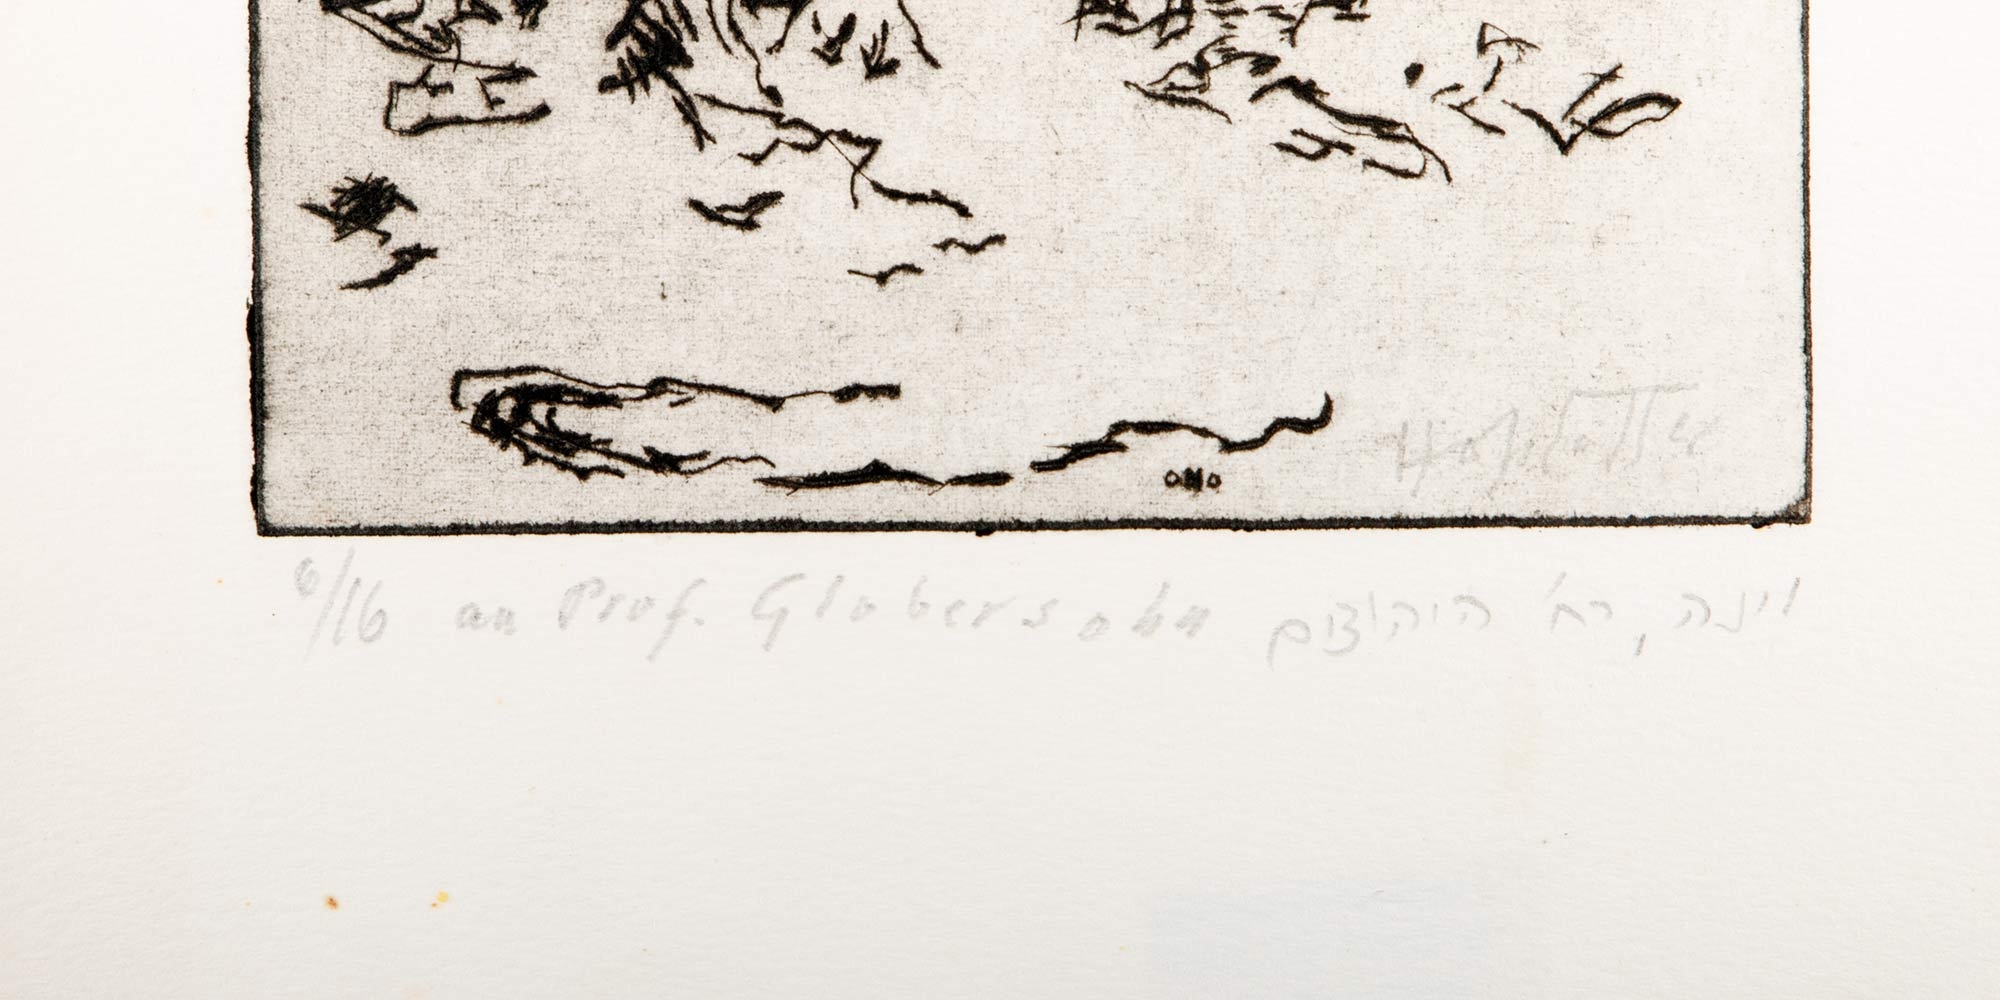 6/16 an Prof. Globersohn וינה, רח' היהודים